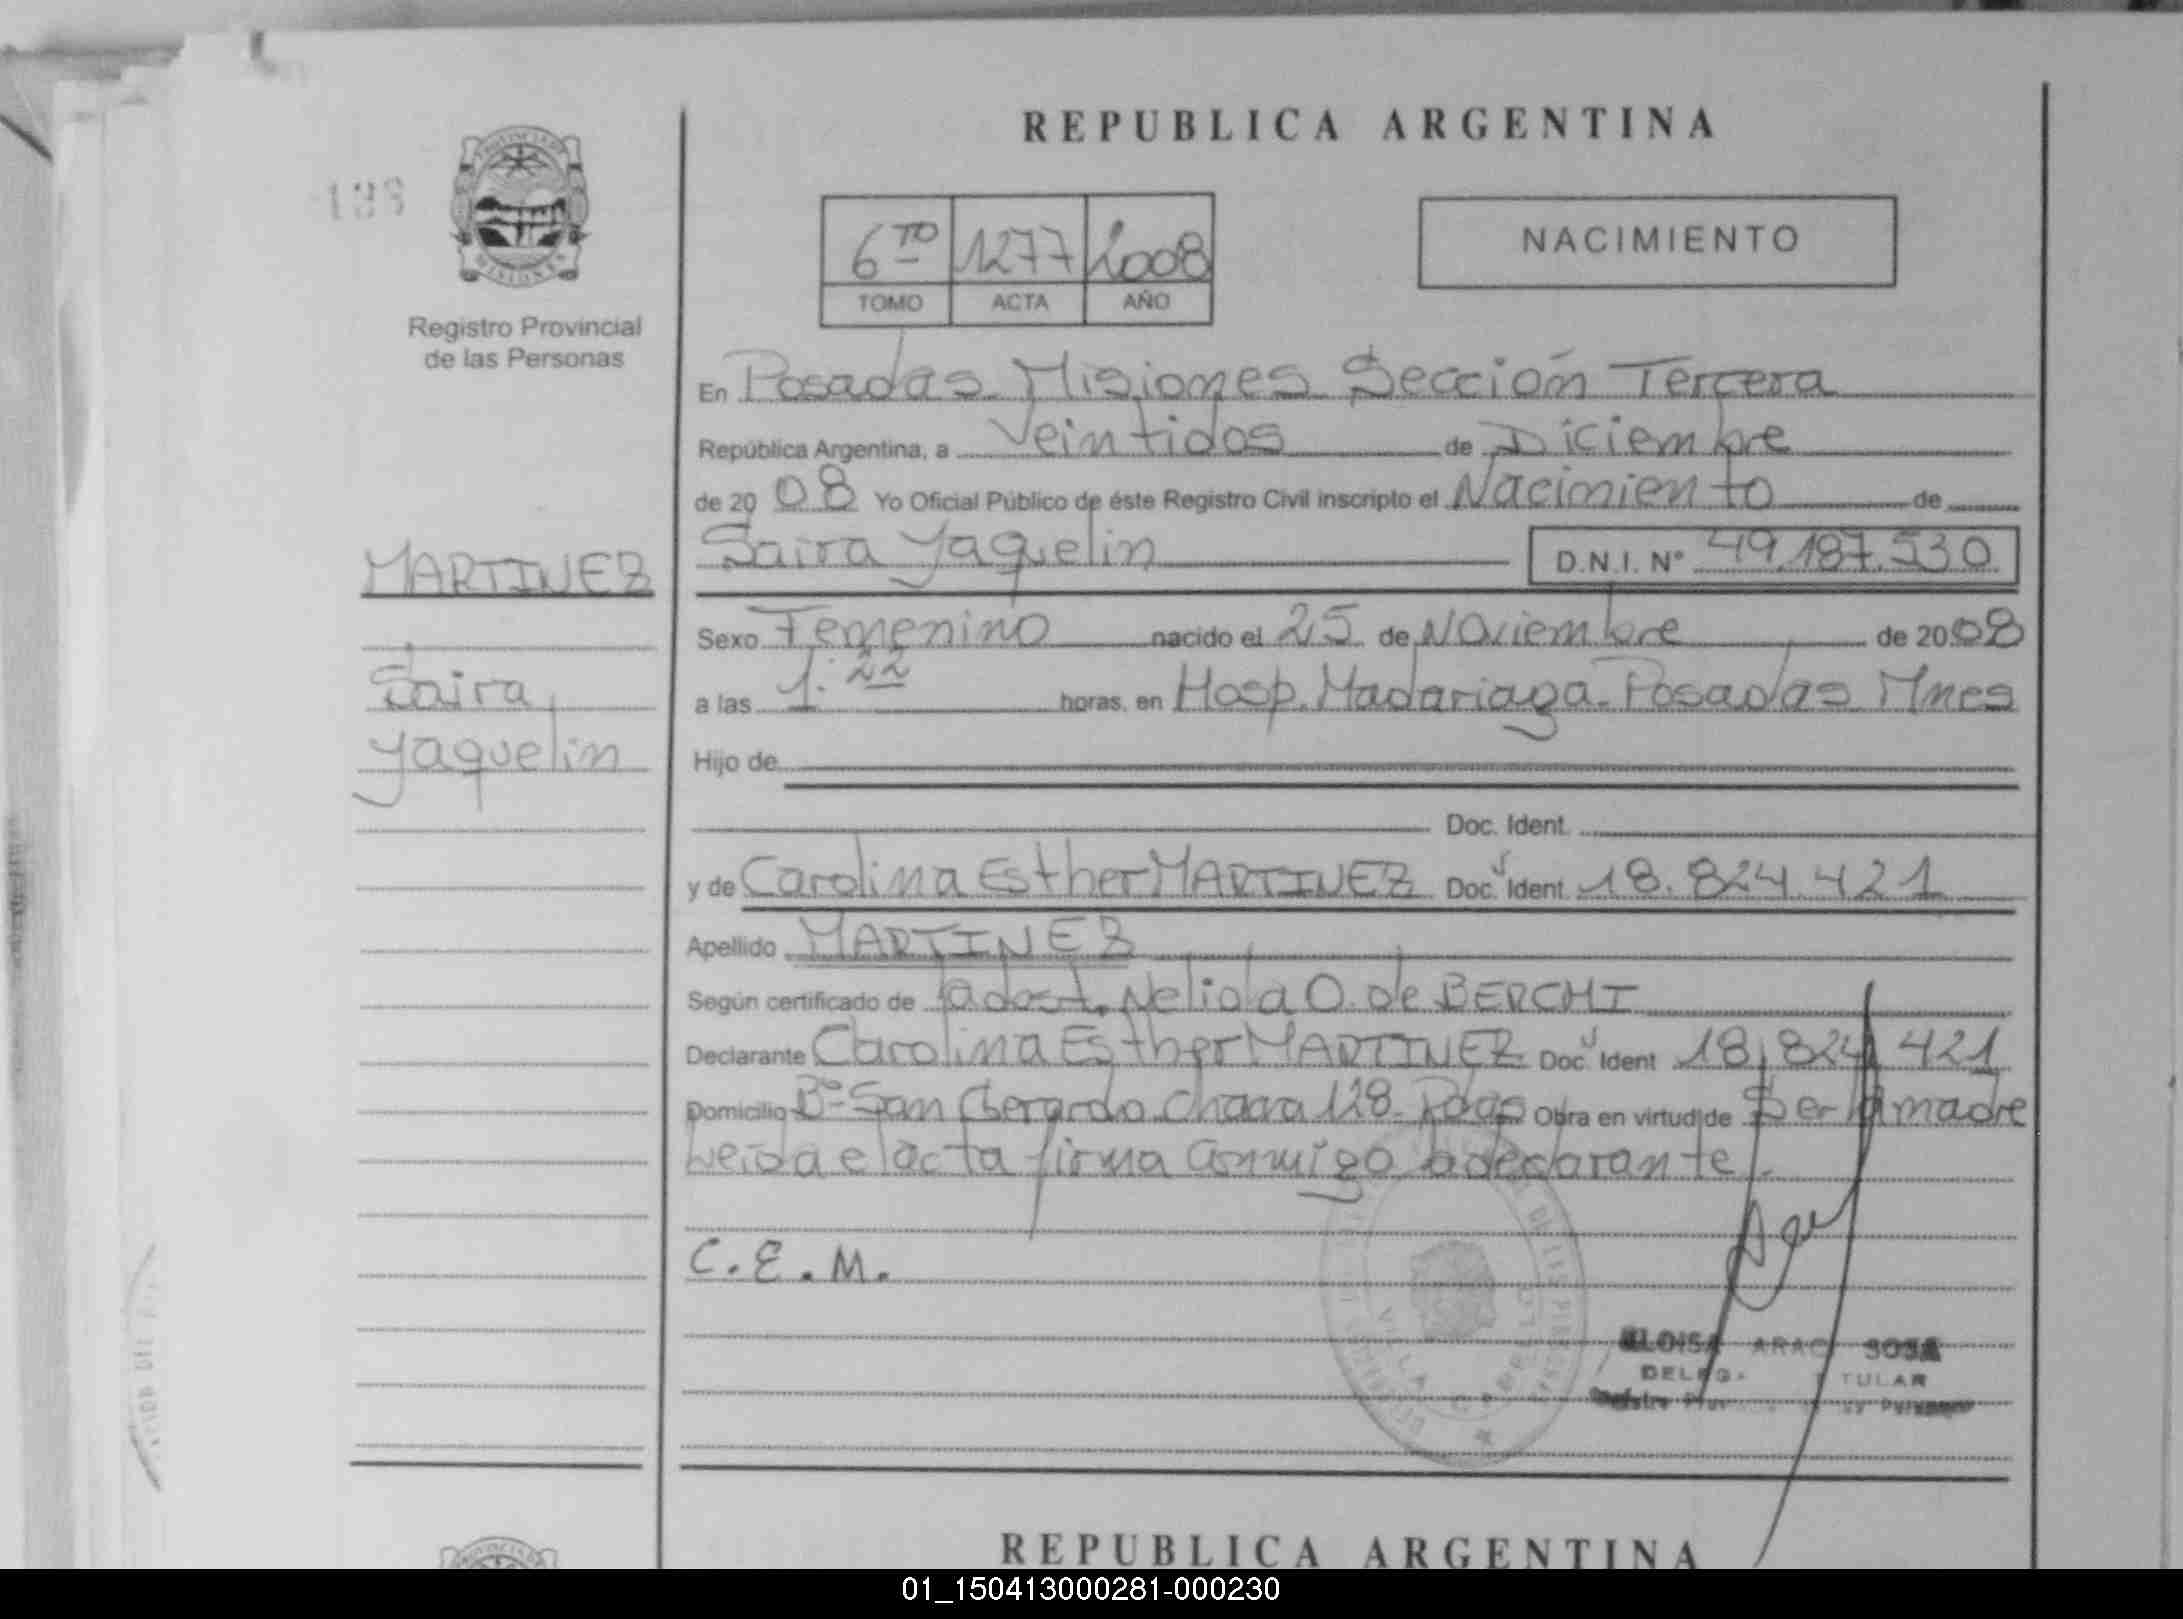 REPUBLICA ARGENTINA
PROVINCIA DE MISIONES
Registro Provincial
de las Personas
6TO 1277 2008
TOMO ACTA AÑO
NACIMIENTO
En Posadas Misiones Sección Tercera
República Argentina, a Veintidos de Diciembre
de 2008 Yo Oficial Público de éste Registro Civil inscripto el Nacimiento de
Saira Yaquelin D.N.I. Nº 49.187.530
MARTINEZ
Saira
Yaquelin
Sexo Femenino nacido el 25 de Noviembre de 2008
a las 1:22 horas, en Hosp. Madariaga-Posadas Mnes
Hijo de
Doc. Ident.
y de Carolina Esther MARTINEZ Doc. Ident. 18.824.421
Apellido MARTINEZ
Según certificado de Nelida O. de BERCHI
Declarante Carolina Esther MARTINEZ Doc. Ident 18.824.421
Domicilio Bº San Gerardo Chacra 128 Pdas Obra en virtud de Ser la madre
Leida el acta firma conmigo la declarante.
C.E.M.
SOSA
REPUBLICA ARGENTINA
01_150413000281-000230